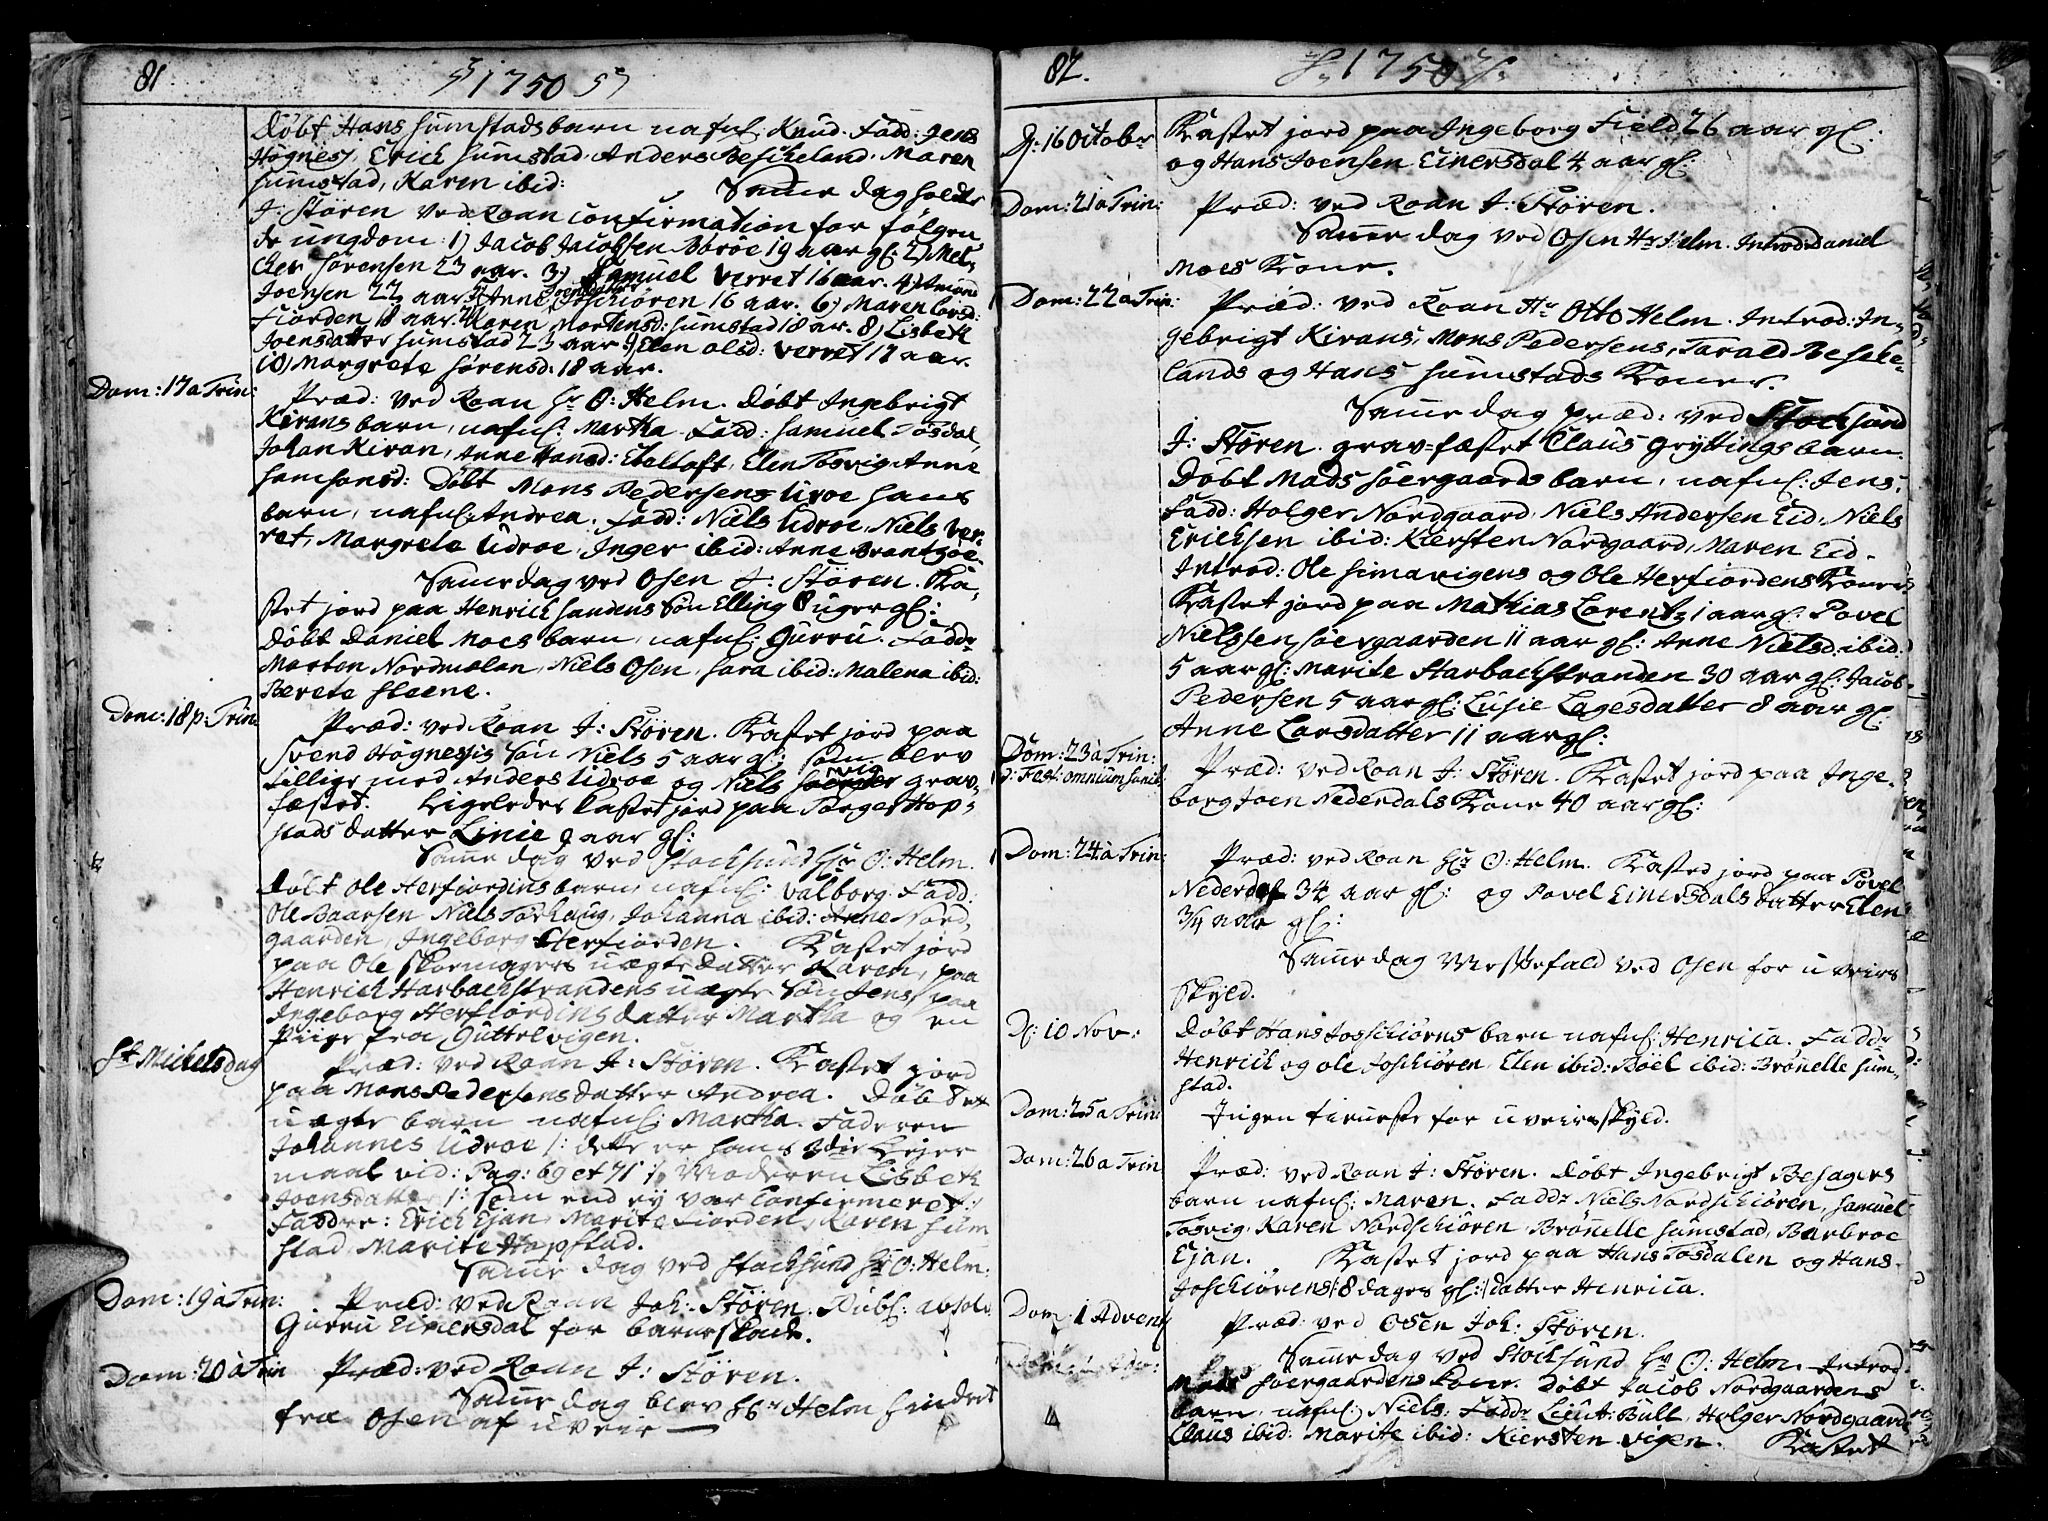 81
1750
Døbt Hans Sumstads barn nafnl: Knud. Fadd: Jens
Høgnes, Erich Sumstad, Anders Beskeland, Maren
Sumstad, Karen ibid:
Samme dag holdt
J. Støren ved Roan Confirmation for følgen
de ungdom: 1) Jacob Jacobsen Boroe 19 aar gl: 2) Mel-
cher Sørensen 23 aar. 3) Samuel Verret 16 aar. 4)
Joensen 22 aar 5) Anne Joschiøren 16 aar. 6) Maren Larsd:
Fiorden 18 aar. 7) Karen Mortensd: Sumstad 18 ar. 8) Lisbeth
Joensdatter Sumstad 23 aar 9) Elen Olsd: Verret 17 aar.
10) Margrete Sørensd: 18 aar.
Dom: 17 a Trin:
Præd: ved Roan Hr O: Helm. Døbt Ingebrigt
Kirans barn, nafnl: Martha. Fadd: Samuel Tosdal,
Johan Kiran, Anne Hansd: Ebeltoft, Elen Tosvig, Anne
Samsonsd: Døbt Mons Pedersens Udroe hans
barn, nafnl: Andrea. Fadd: Niels Udroe, Niels Ver-
ret, Margrete Udroe, Inger ibid: Anne Brantzøe
Samme dag ved Osen J: Støren. Ka-
stet jord paa Henrich Sandens Søn Elling 8 uger gl:
Døbt Daniel Moes barn, nafnl: Gurru. Faddr
Morten Nordmelan, Niels Osen, Sara ibid: Malena ibid:
Berete Steene.
Dom: 18 p: Trin:
Præd: ved Roan J: Støren. Kastet jord paa
Svend Høgnesis Søn Niels 5 aar gl: som blev
tillige med Anders Udroe og Niels grav-
fæstet. Ligeledes kastet jord paa Torger Hop-
stads datter Linie 9 aar gl:
Samme dag ved Stochsund Hr O: Helm.
Døbt Ole Herfiordens barn, nafnl: Valborg. Fadd:
Ole Baarsen Niels Torhaug, Johanna ibid: Anne Nord
gaarden, Ingeborg Herfiorden. Kastet jord
paa Ole Skormagers uægte datter Karen, paa
Henrich Harbachstrandens uægte Søn Jens, paa
Ingeborg Herfiordens datter Martha og en
Piige fra Guttelvigen.
St Michels dag
Præd: ved Roan J: Støren. Kastet jord
paa Mons Pedersens datter Andrea. Døb 8 et
uægte barn nafnl: Martha. Faderen
Johannes Udroe /: dette er hans 3die Lejer
maal vid: Pag: 69 et 71 :/ Moderen Lisbeth
Joensdatter /: som end ey var Confirmeret :/
Faddre: Erich Ejan, Marite Fiorden, Karen Sum
stad, Marite Hopstad.
Samme dag ved Stochsund Hr O: Helm:
Dom: 19 a Trin:
Præd: ved Roan Joh: Støren. Publ: absolv
Gurru Einersdal for barnskade.
Dom: 20 a Trin
Præd: ved Roan J: Støren.
Samme dag blev Hr Helm hindret
fra Osen af uveir
82.
1750
D: 16 Octobr
Kastet jord paa Ingeborg Field 26 aar gl:
og Hans Joensen Einersdal 4 aar gl:
Dom: 21 a Trin:
Præd: ved Roan J: Støren.
Samme dag ved Osen Hr Helm. Introd: Daniel
Moes Kone.
Dom: 22 a Trin:
Præd: ved Roan Hr Otto Helm. Introd: In-
gebrigt Kirans, Mons Pedersens, Tarald Beske-
lands og Hans Sumstads Koner.
Samme dag præd: ved Stochsund
J: Støren. grav-fæstet Claus Gryttings barn.
Døbt Mads Søergaards barn, nafnl: Jens,
Fadd: Holger Nordgaard, Niels Andersen Eid, Niels
Erichsen ibid: Kiersten Nordgaard, Maren Eid.
Introd: Ole Simavigens og Ole Herfiordens Koner
Kastet jord paa Mathias Lorentz 1 aar gl: Povel
Nielssen Søergaarden 11 aar gl: Anne Nielsd: ibid:
5 aar gl: Marite Harbachstranden 30 aar gl: Jacob
Pedersen 5 aar gl: Lusie Lagesdatter 8 aar gl:
Anne Larsdatter 11 aar gl:
Dom: 23 a Trin:
d: Fest: omnium Sanct:
Præd: ved Roan J: Støren. Kastet jord paa Inge-
borg Joen Nederdals Kone 40 aar gl:
Dom: 24 a Trin:
Præd: ved Roan Hr O: Helm. Kasted jord paa Povel
Nederdal 34 aar gl: og Povel Einersdals datter Elen
3/4 aar gl:
Samme dag Messefald ved Osen for uveirs
skyld.
D: 10 Nov:
Døbt Hans Joschiørns barn nafnl: Henrica. Faddr
Henrich og Ole Joschiøren, Elen ibid: Boel ibid: Brønelle Sum-
stad.
Dom: 25 a Trin:
Ingen tieneste for uveirs skyld.
Dom: 26 a Trin
Præd: ved Roan J: Støren. Døbt Ingebrigt Besagers
barn nafnl: Maren. Faddr Niels Nordschiøren, Samuel
Tosvig, Karen Nordschiøren, Brønelle Sumstad, Barbroe
Ejan. Kastet jord paa Hans Tosdalen og Hans
Joschiørens /: 8 dages gl: :/ datter Henrica.
Dom 1 Advent
Præd: ved Osen Joh: Støren.
Samme dag ved Stochsund Hr O: Helm. Introd.
Mads Søergaardens Kone. Døbt Jacob Nordgaardens
barn, nafnl: Niels: Faddr Lieut: Bull, Holger Nordgaard
Claus ibid: Marite ibid: Kiersten Vigen. Kastet